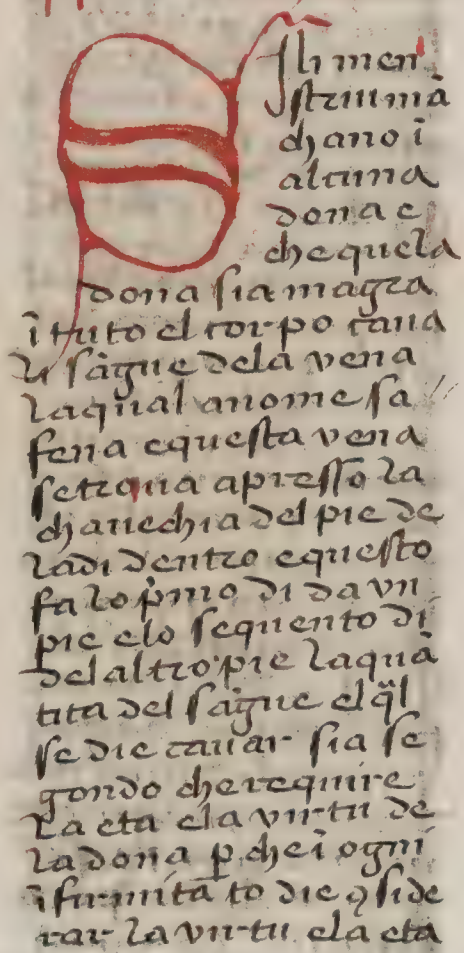 S e li men
struu mā
chano ī
alcuna
dona e
che quela
dona sia magra
ī tuto el corpo caua
li sāgue dela vena
laqual a nome sa
fena e questa vena
se troua apresso la
chauechia del pie de
ladi dentro e questo
fa lo pͥmo di da vn
pie e lo sequento di
del altro pie la quā
tita del sāgue el q̄l
se die cauar sia se
gondo che require
la eta e la virtu de
la dona ꝑche ī ogni
īfirmita to die ꝯside
rar la virtu e la eta